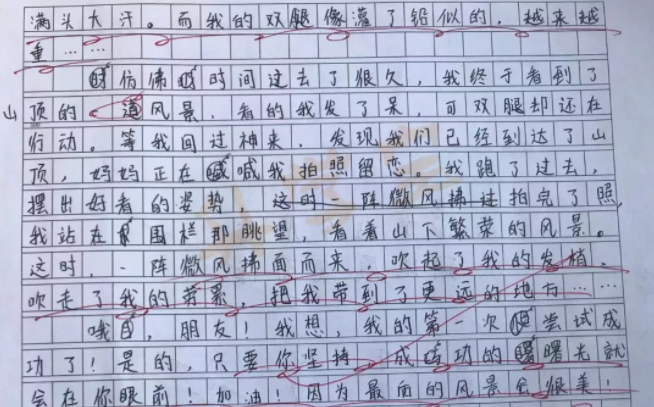 满头大汗。而我的双腿像灌了铅似的，越来越
重……
仿佛时间过去了很久，我终于看到了
山顶的道风景，看的我发了呆，可双腿却还在
行动。等我回过神来，发现我们已经到达了山
顶，妈妈正在喊我拍照留恋。我跑了过去，
摆出好看的姿势 这时一阵微风拂过拍完了照，
我站在围栏那眺望，看着山下繁荣的风景。
这时，一阵微风拂面而来，吹起了我的发梢，
吹走了我的劳累，把我带到了更远的地方……
哦，朋友！我想，我的第一次尝试成
功了！是的，只要你坚持，成功的曙光就
会在你眼前！加油！因为最后的风景会很美！